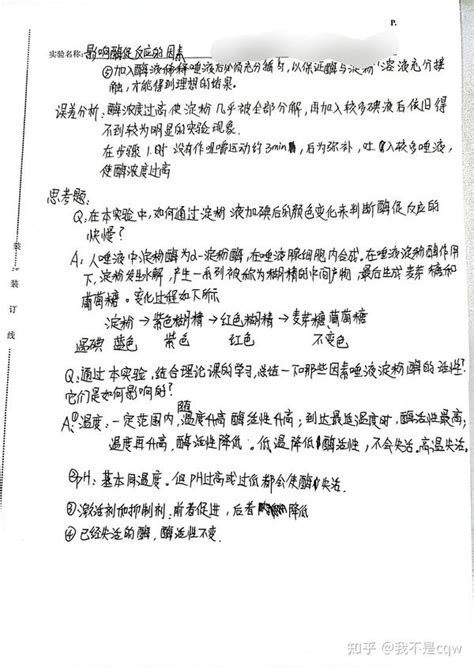 P.
实验名称: 影响酶促反应的因素
⑤加入酶液(稀释唾液)后必须充分摇匀,以保证酶与淀粉溶液充分接
触,才能得到理想的结果。
误差分析:酶浓度过高使淀粉几乎被全部分解,再加入较多碘液后依旧得
不到较为明显的实验现象.
在步骤1.时没有作咀嚼运动约3min,后为弥补,吐入较多唾液,
使酶浓度过高
思考题:
Q:在本实验中,如何通过淀粉液加碘后的颜色变化来判断酶促反应的
快慢?
A:人唾液中淀粉酶为α-淀粉酶,在唾液腺细胞内合成。在唾液淀粉酶作用
下,淀粉发生水解,产生一系列被称为糊精的中间产物,最后生成麦芽糖和
葡萄糖。变化过程如下所示
淀粉→紫色糊精→红色糊精→麦芽糖、葡萄糖
遇碘 蓝色 紫色 红色 不变色
Q:通过本实验,结合理论课的学习,总结一下哪些因素唾液淀粉酶的活性?
它们是如何影响的?
A:①温度:一定范围内,随温度升高酶活性升高;到达最适温度时,酶活性最高;
温度再升高,酶活性降低。低温降低酶活性,不会失活.高温失活.
②pH:基本同温度。但pH过高或过低都会使酶失活.
③激活剂和抑制剂:前者促进,后者降低
④已经失活的酶,酶活性不变.
装
装
订
线
知乎 @我不是cqw